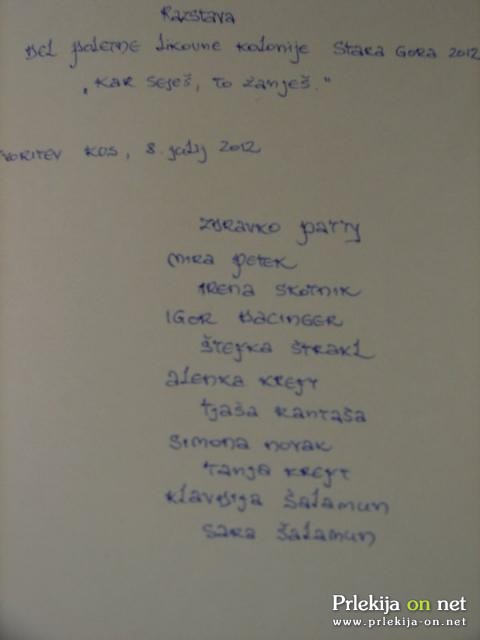 Razstava
del poletne likovne kolonije Stara Gora 2012
"Kar seješ, to žanješ."
voritev Kos, 8. julij 2012
Zdravko Patty
Mira Petek
Irena Skotnik
Igor Bacinger
Štefka Štrakl
Alenka Kreft
Tjaša Kantaša
Simona Novak
Tanja Kreft
Klavdija Šalamun
Sara Šalamun
Prlekija on net
www.prlekija-on.net